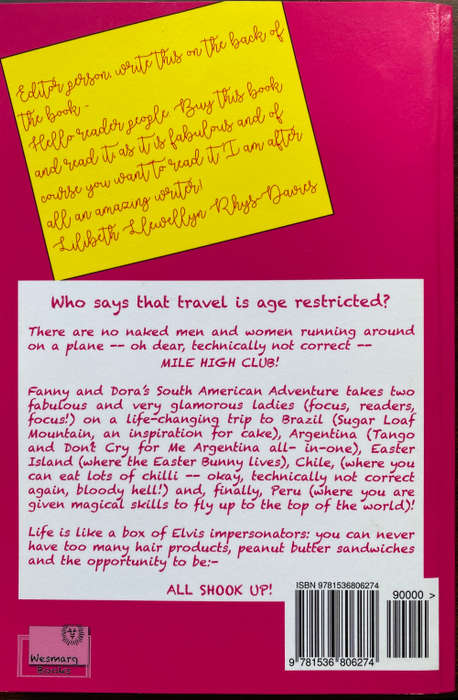 Editor person, write this on the back of
the book -
Hello reader people. Buy this book
and read it, as it is fabulous and of
course you want to read it. I am after
all an amazing writer!
Lilibeth Llewellyn Rhys-Davies
Who says that travel is age restricted?
There are no naked men and women running around
on a plane -- oh dear, technically not correct --
MILE HIGH CLUB!
Fanny and Dora's South American Adventure takes two
fabulous and very glamorous ladies (focus, readers,
focus!) on a life-changing trip to Brazil (Sugar Loaf
Mountain, an inspiration for cake), Argentina (Tango
and Don't Cry for Me Argentina all- in-one), Easter
Island (where the Easter Bunny lives), Chile, (where you
can eat lots of chilli -- okay, technically not correct
again, bloody hell!) and, finally, Peru (where you are
given magical skills to fly up to the top of the world)!
Life is like a box of Elvis impersonators: you can never
have too many hair products, peanut butter sandwiches
and the opportunity to be:-
ALL SHOOK UP!
ISBN 9781536806274
90000 >
9 781536 806274
Wesmarq
Books